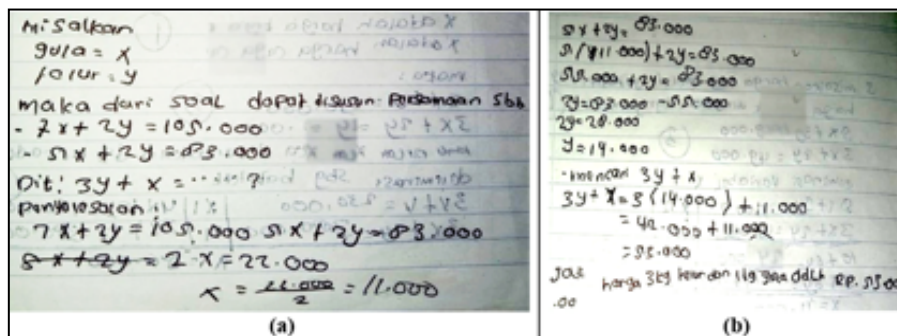 misalkan
gula = x
telur = y
maka dari soal dapat disusun persamaan sbb
- 7x + 2y = 105.000
- 5x + 2y = 83.000
Dit: 3y + x = ..... ?
Penyelesaian
7x + 2y = 105.000 5x + 2y = 83.000
5x + 2y = 2x = 22.000
x = 22.000 / 2 = 11.000
(a)
5x + 2y = 83.000
5(11.000) + 2y = 83.000
55.000 + 2y = 83.000
2y = 83.000 - 55.000
2y = 28.000
y = 14.000
- mencari 3y + x
3y + x = 3(14.000) + 11.000
= 42.000 + 11.000
= 53.000
harga 3kg telur dan 1kg gula adlh RP. 53.0
.00
(b)